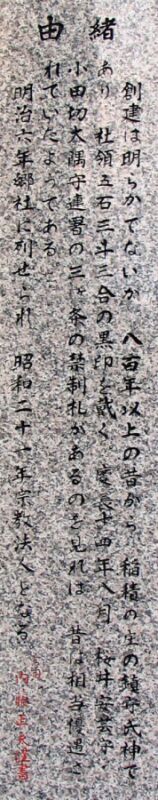 由緒
創建は明らかでないが 八百年以上の昔から 稲積の庄の鎮守氏神で
あり 社領五石三斗三合の黒印を戴く 慶長十四年八月 桜井安芸守
小田切大隅守連署の三ヶ条の禁制札があるのを見れば 昔は相当優遇さ
れていたようである
明治六年郷社に列せられ 昭和二十一年宗教法人となる